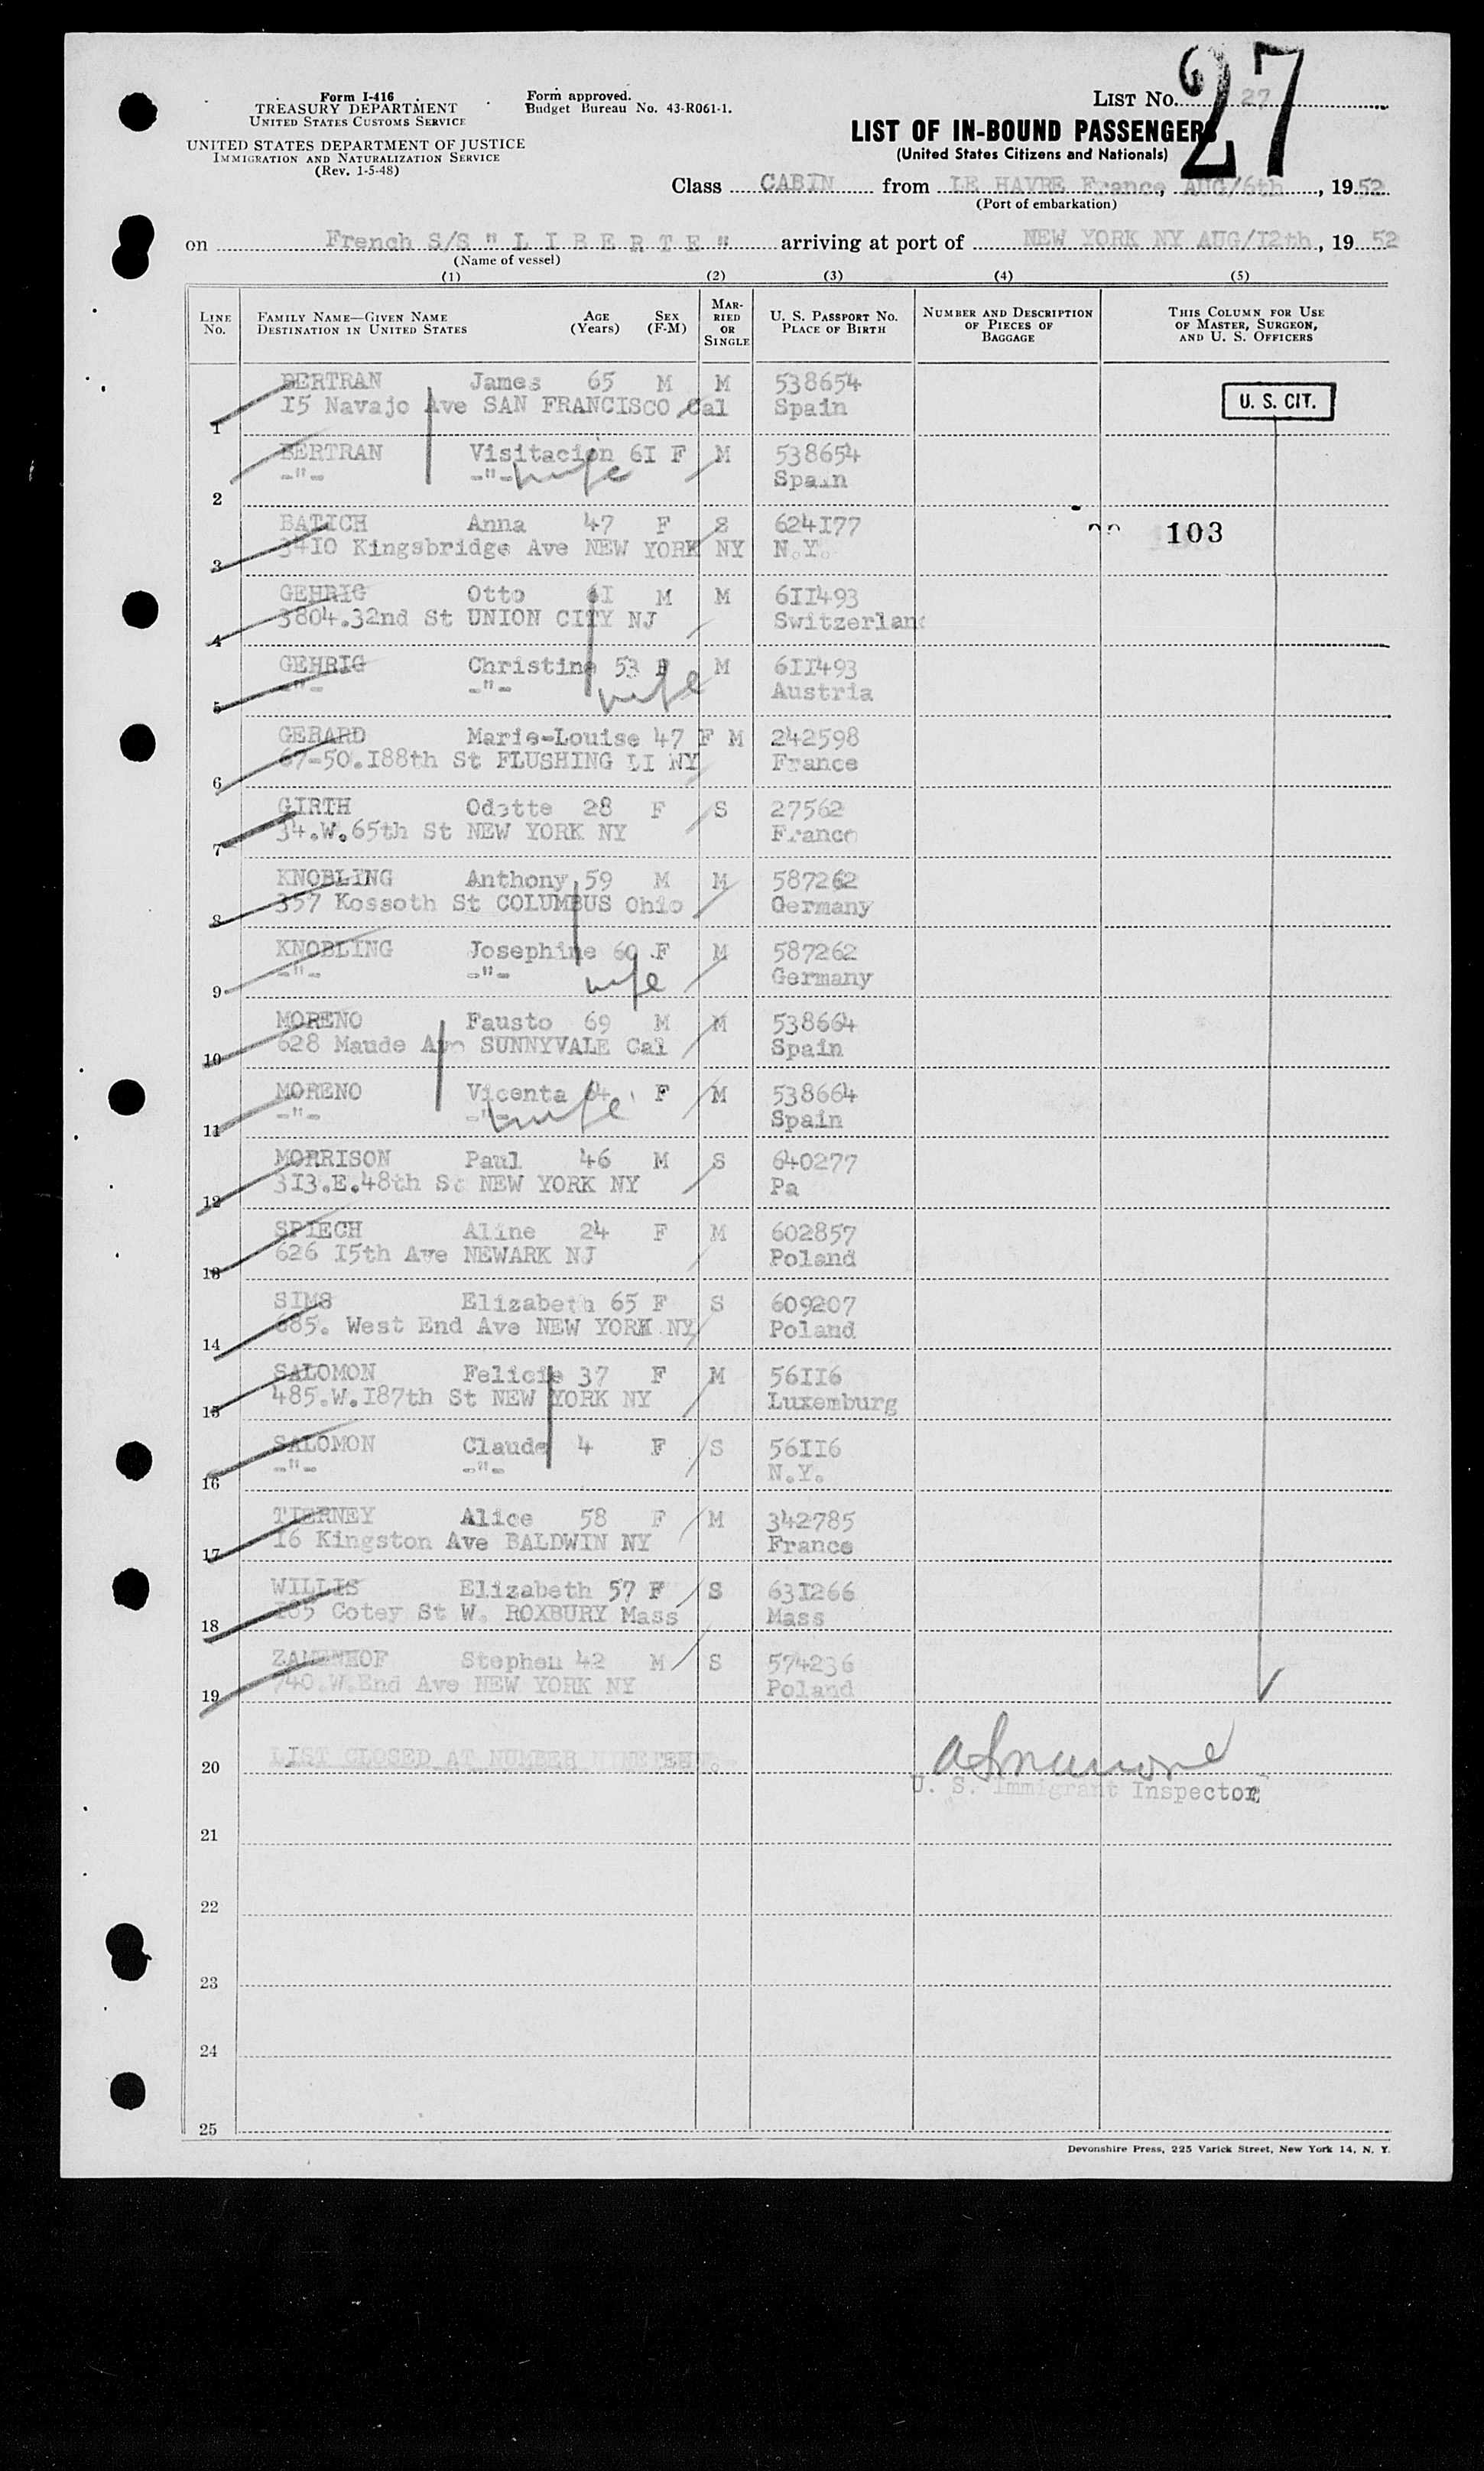 Form I-416
TREASURY DEPARTMENT
UNITED STATES CUSTOMS SERVICE
UNITED STATES DEPARTMENT OF JUSTICE
IMMIGRATION AND NATURALIZATION SERVICE
(Rev. 1-5-48)
Form approved.
Budget Bureau No. 43-R061-1.
LIST No. 27
27
LIST OF IN-BOUND PASSENGERS
(United States Citizens and Nationals)
Class CABIN from LE HAVRE France, AUG/6th, 1952
(Port of embarkation)
on French S/S "LIBERTE" arriving at port of NEW YORK NY AUG/I2th, 1952
(Name of vessel)
(1) (2) (3) (4) (5)
LINE No. FAMILY NAME—GIVEN NAME DESTINATION IN UNITED STATES AGE (Years) SEX (F-M) MARRIED OR SINGLE U. S. PASSPORT No. PLACE OF BIRTH NUMBER AND DESCRIPTION OF PIECES OF BAGGAGE THIS COLUMN FOR USE OF MASTER, SURGEON, AND U. S. OFFICERS
BERTRAN James 65 M M 538654
1 I5 Navajo Ave SAN FRANCISCO Cal Spain U. S. CIT.
BERTRAN Visitacion 6I F M 538654
2 -"- -"- wife Spain
BATICH Anna 47 F S 624I77
3 34I0 Kingsbridge Ave NEW YORK NY N.Y. 103
GEHRIG Otto 6I M M 6II493
4 3804.32nd St UNION CITY NJ Switzerland
GEHRIG Christine 53 F M 6II493
5 -"- -"- wife Austria
GERARD Marie-Louise 47 F M 242598
6 67-50.I88th St FLUSHING LI NY France
GIRTH Odette 28 F S 27562
7 34.W.65th St NEW YORK NY France
KNOBLING Anthony 59 M M 587262
8 357 Kossoth St COLUMBUS Ohio Germany
KNOBLING Josephine 60 F M 587262
9 -"- -"- wife Germany
MORENO Fausto 69 M M 538664
10 628 Maude Ave SUNNYVALE Cal Spain
MORENO Vicenta 64 F M 538664
11 -"- -"- wife Spain
MORRISON Paul 46 M S 640277
12 3I3.E.48th St NEW YORK NY Pa
SPIECH Aline 24 F M 602857
13 626 I5th Ave NEWARK NJ Poland
SIMS Elizabeth 65 F S 609207
14 685. West End Ave NEW YORK NY Poland
SALOMON Felicie 37 F M 56II6
15 485.W.I87th St NEW YORK NY Luxemburg
SALOMON Claude 4 F S 56II6
16 -"- -"- N.Y.
TIERNEY Alice 58 F M 342785
17 I6 Kingston Ave BALDWIN NY France
WILLIS Elizabeth 57 F S 63I266
18 Cotey St W. ROXBURY Mass Mass
ZAMENHOF Stephen 42 M S 574236
19 740.W.End Ave NEW YORK NY Poland
20 LIST CLOSED AT NUMBER NINETEEN.
U. S. Immigrant Inspector
21
22
23
24
25
Devonshire Press, 225 Varick Street, New York 14, N. Y.